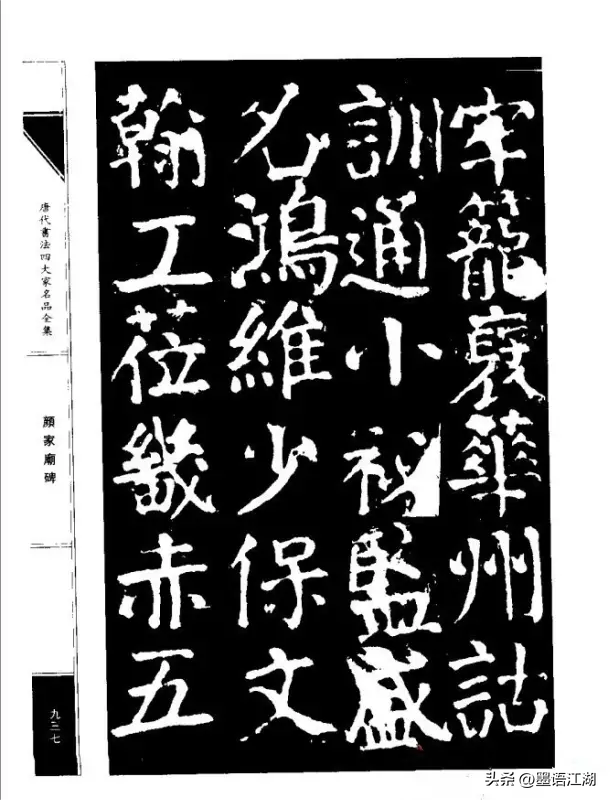 牢籠華州詁
訓通小祕監盛
名鴻維少保文
翰工莅畿赤五
唐代書法四大家名品全集
顔家廟碑
九三七
头条 @墨语江湖